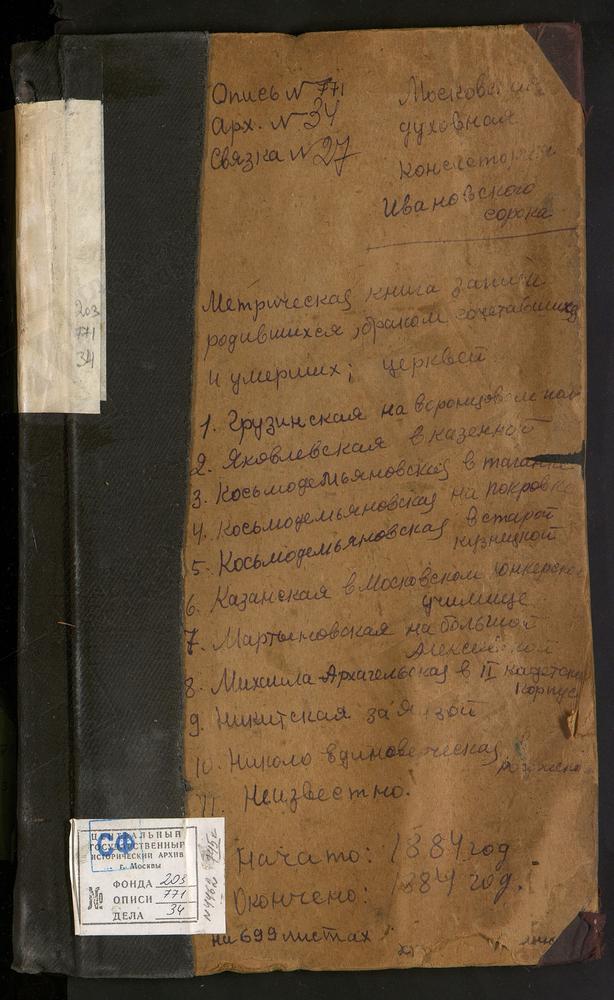 Опись N 771
Арх. N 34
Связка N 27
Московская
духовная
консистория
Ивановского
сорока
Метрическая книга записи
родившихся, браком сочетавшихся
и умерших; церквей
1. Грузинская на воронцовом поле
2. Яковлевская в казенной
3. Косьмодемьяновская в таганке
4. Косьмодемьяновская на покровке
5. Косьмодемьяновская в старой
кузнецкой
6. Казанская в Московском юнкерском
училище
7. Мартыновская на большой
Алексеевской
8. Михаила Архагельская в II кадетском
Корпусе
9. Никитская за Яузой
10. Николо единоверческая
11. Неизвестно.
Начато: 1884 год
Окончено: 1884 год.
на 699 листах
203
771
34
СФ
ЦЕНТРАЛЬНЫЙ
ГОСУДАРСТВЕННЫЙ
ИСТОРИЧЕСКИЙ АРХИВ
г. Москвы
№
ФОНДА 203
ОПИСИ 771
ДЕЛА 34